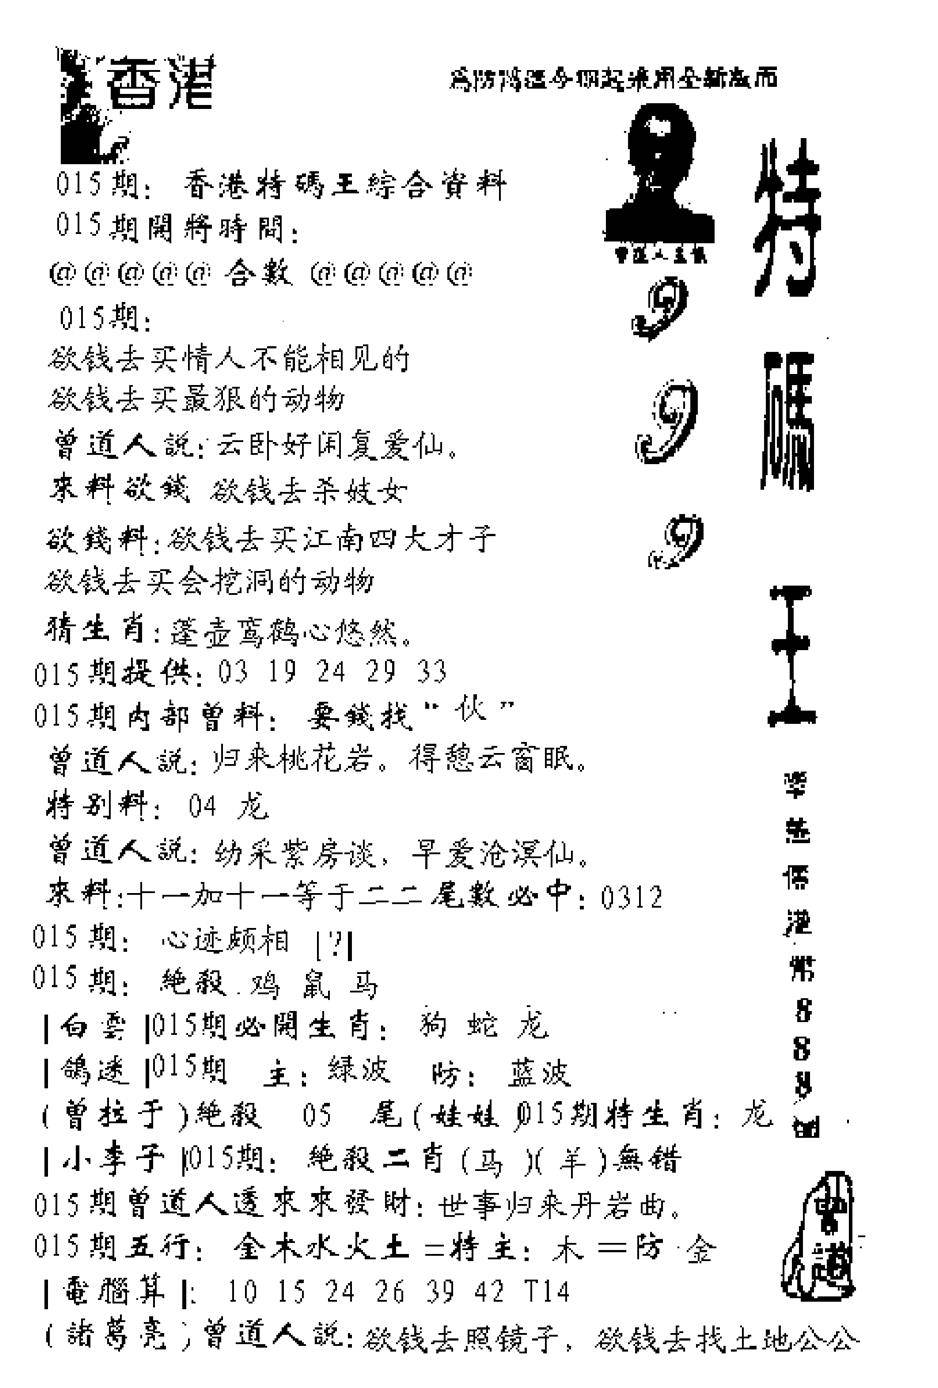 香港
為防偽造今期起采用全新版面
015期：香港特碼王綜合資料
015期開將時間：
@@@@@合數@@@@@
015期：
欲钱去买情人不能相见的
欲钱去买最狠的动物
曾道人説：云卧好闲复爱仙。
來料欲錢 欲钱去杀妓女
欲錢料：欲钱去买江南四大才子
欲钱去买会挖洞的动物
猜生肖：蓬壶鸾鹤心悠然。
015期提供：03 19 24 29 33
015期内部曾料：要錢找“伙”
曾道人説：归来桃花岩。得憩云窗眠。
特别料：04 龙
曾道人説：幼采紫房谈，早爱沧溟仙。
來料：十一加十一等于二二尾數必中：0312
015期：心迹颇相 [?]
015期：絶殺 鸡 鼠 马
|白雲|015期必開生肖：狗 蛇 龙
|鴿迷|015期 主：绿波 防：蓝波
(曾拉于)絶殺 05 尾(娃娃)015期特生肖：龙
|小李子|015期：絶殺二肖(马)(羊)無錯
015期曾道人透來來發財：世事归来丹岩曲。
015期五行：金木水火土=特主：木=防 金
|電腦算|：10 15 24 26 39 42 T14
(諸葛亮)曾道人説：欲钱去照镜子，欲钱去找土地公公
曾道人主傳
9
9
9
特
碼
王
港
幣
8
8
8
曾道